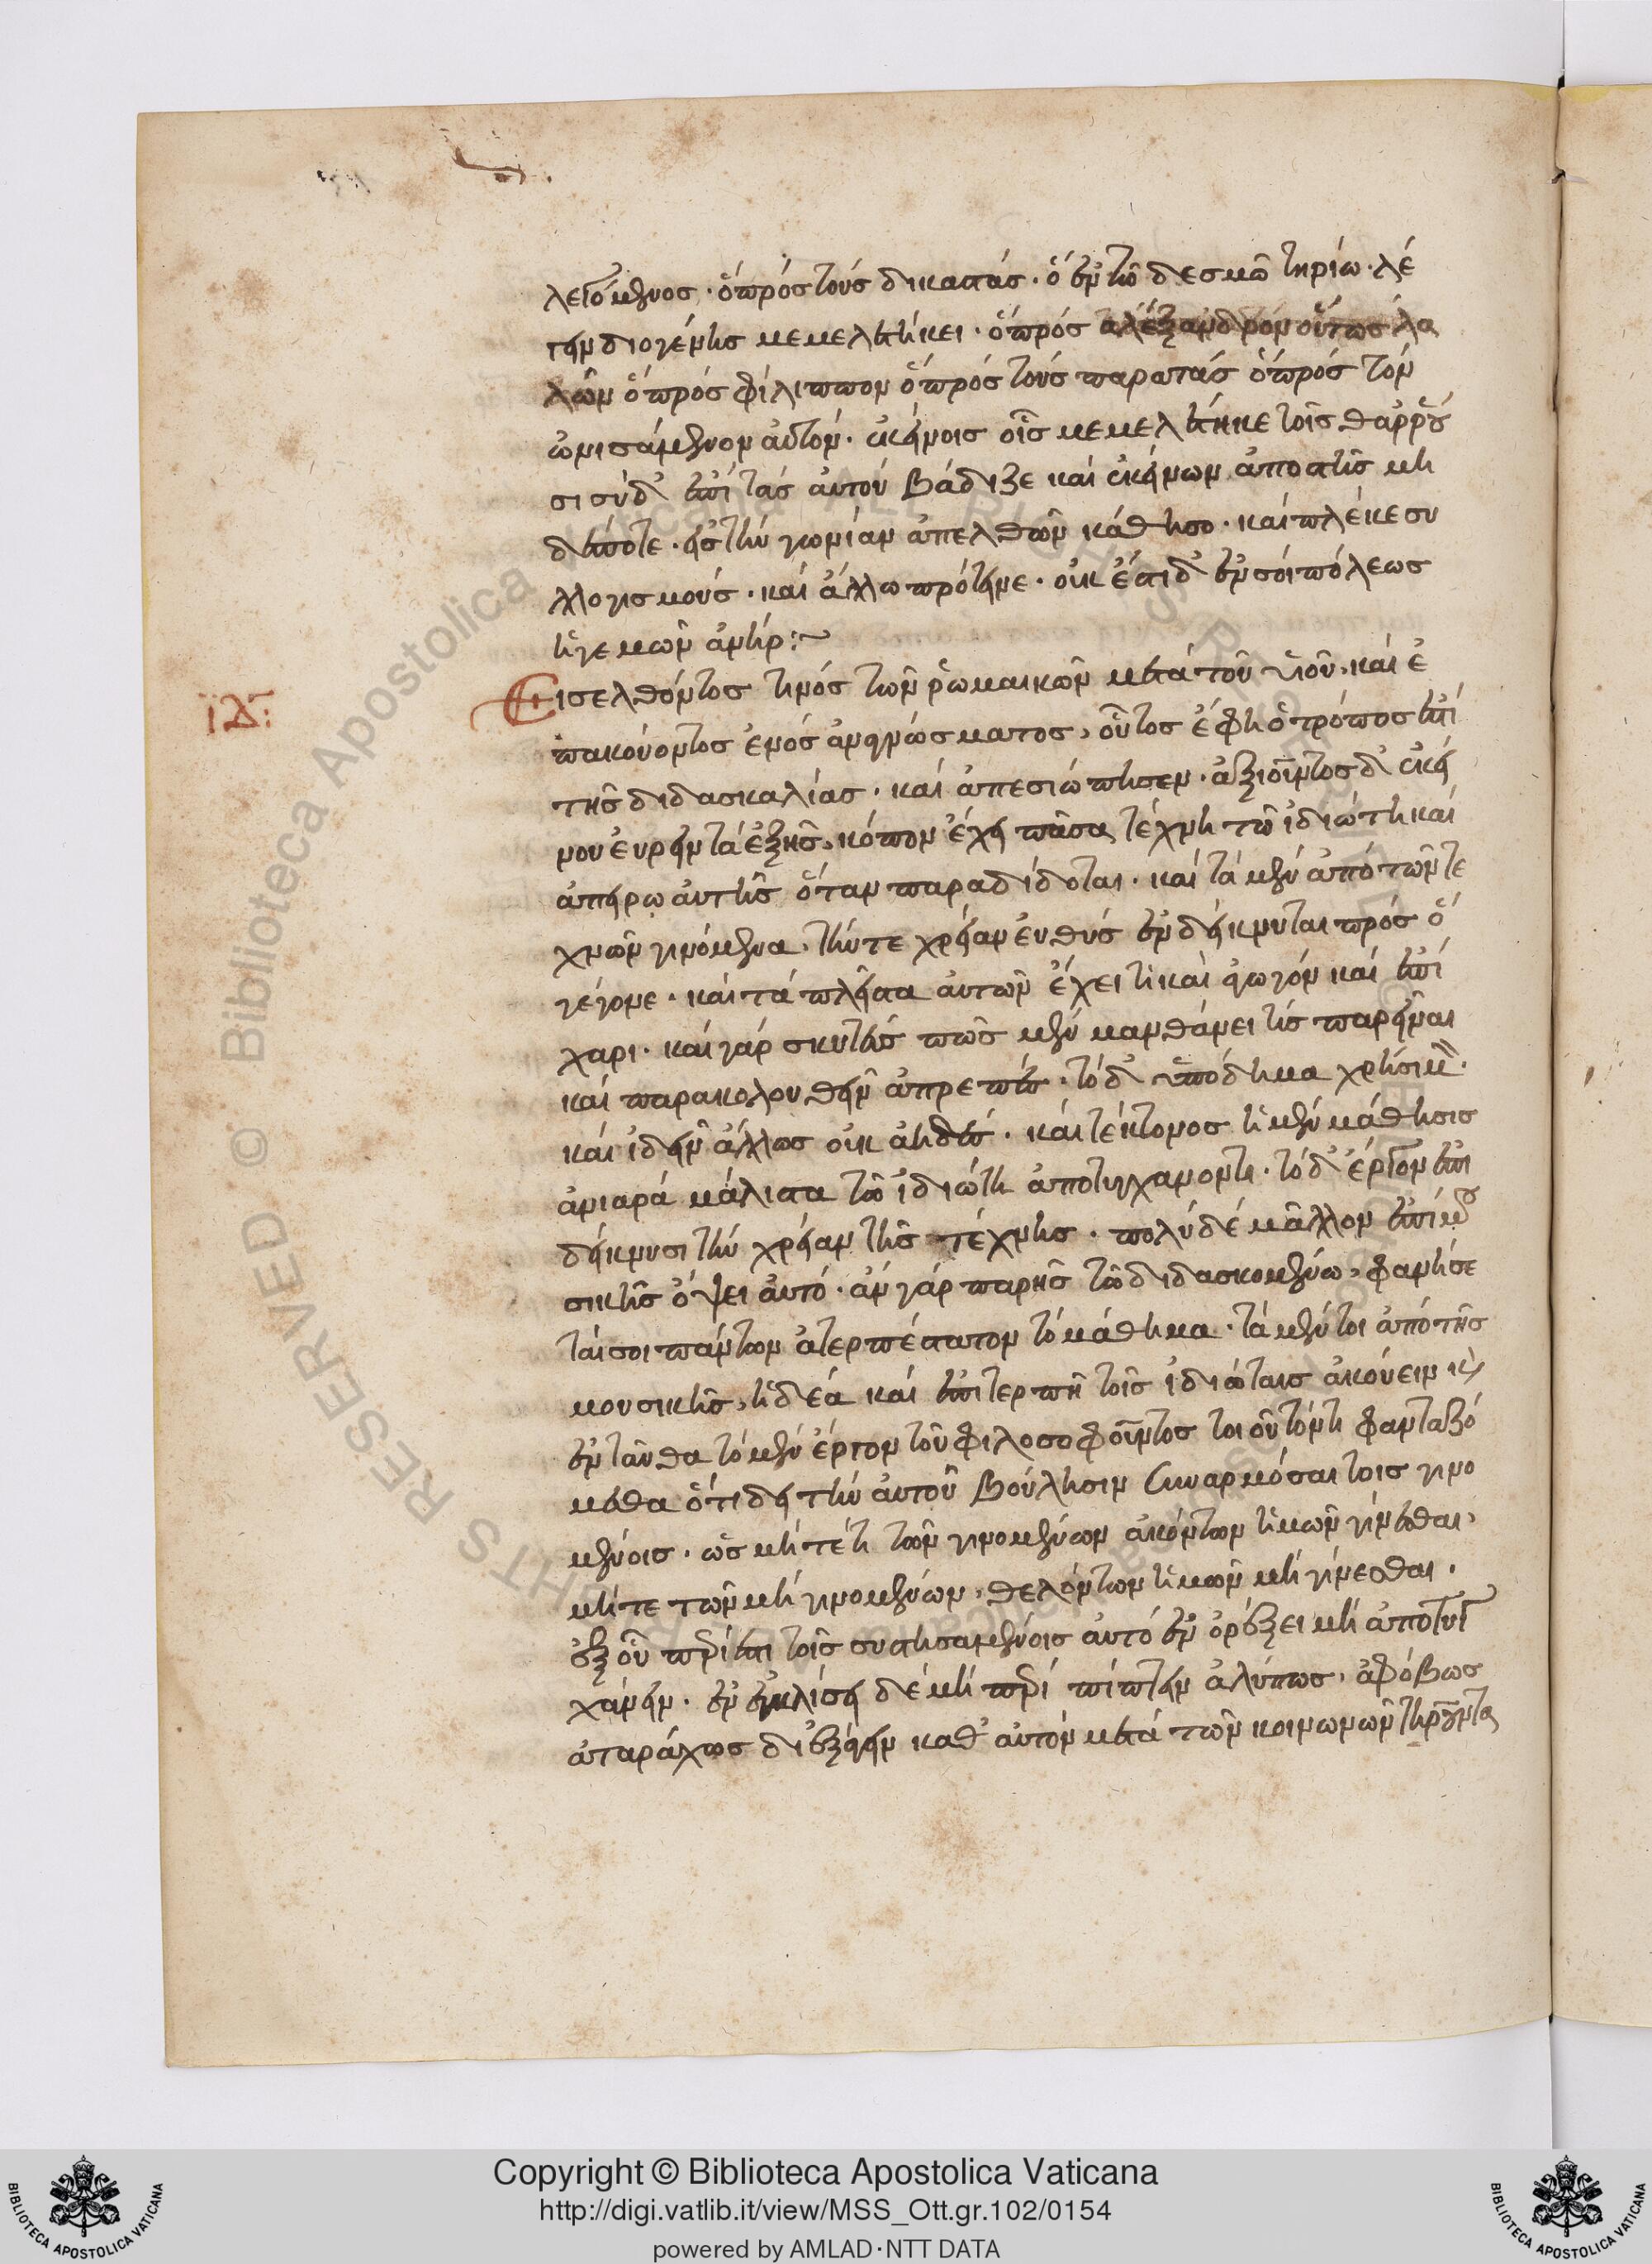 λεγόμενος · ὁ πρὸς τοὺς δικαστάς · ὁ ἐν τῶ δεσμωτηρίω · λέ
γειν διογένης μεμελετήκει · ὁ πρὸς ἀλέξανδρον οὕτως λα
λῶν ὁ πρὸς φίλιππον ὁ πρὸς τοὺς πειρατὰς ὁ πρὸς τὸν
ὠνησάμενον αὐτόν · ἐκείνοις οἷς μεμελέτηκε τοῖς θαρροῦ
σι σὺ δ' ἐπὶ τὰς αὐτοῦ βάδιζε καὶ ἐκείνων ἀποστῆς μη
δέποτε · εἰς τὴν γωνίαν ἀπελθὼν κάθησο · καὶ πλέκε συ
λλογισμούς · καὶ ἄλλω πρότεινε · οὐκ ἔστι δ' ἐν σοὶ πόλεως
ἡγεμὼν ἀνήρ :~
ιδ:
Εἰσελθόντος τινὸς τῶν ῥωμαικῶν μετὰ τοῦ υἱοῦ, καὶ ἐ
πακούοντος ἑνὸς ἀναγνώσματος, οὗτος ἔφη ὁ τρόπος ἐστὶ
τῆς διδασκαλίας · καὶ ἀπεσιώπησεν · ἀξιοῦντος δ' ἐκεί
νου εὑρεῖν τὰ ἑξῆς, κόπον ἔχει πᾶσα τέχνη τῶ ἰδιώτη καὶ
ἀπείρω αὐτῆς ὅταν παραδίδοται · καὶ τὰ μὲν ἀπὸ τῶν τε
χνῶν γινόμενα, τήν τε χρείαν εὐθὺς ἐνδείκνυται πρὸς ὃ
γέγονε · καὶ τὰ πλεῖστα αὐτῶν ἔχει τι καὶ ἀγωγὸν καὶ ἐπί
χαρι · καὶ γὰρ σκυτεὺς πῶς μὲν μανθάνει τὶς παρεῖναι
καὶ παρακολουθεῖν ἀπρεπές · τὸ δ' ὑπόδημα χρήσιμον ·
καὶ ἰδεῖν ἄλλως οὐκ ἀηδές · καὶ τέκτονος ἡ μὲν μάθησις
ἀνιαρὰ μάλιστα τῶ ἰδιώτη ἀποτυγχάνοντι · τὸ δ' ἔργον ἐπι
δείκνυσι τὴν χρείαν τῆς τέχνης · πολὺ δὲ μᾶλλον ἐπὶ μου
σικῆς ὄψει αὐτό · ἂν γὰρ παρῆς τῶ διδασκομένω, φανήσε
ταί σοι πάντων ἀτερπέστατον τὸ μάθημα · τὰ μέν τοι ἀπὸ τῆς
μουσικῆς, ἡδέα καὶ ἐπιτερπῆ τοῖς ἰδιώταις ἀκούειν κὶ
ἐνταῦθα τὸ μὲν ἔργον τοῦ φιλοσοφοῦντος τοιοῦτόν τι φανταζό
μεθα ὅτι δεῖ τὴν αὐτοῦ βούλησιν συναρμόσαι τοῖς γινο
μένοις · ὡς μήτέ τι τῶν γινομένων ἀκόντων ἡμῶν γίνεσθαι,
μήτε τῶν μὴ γινομένων, θελόντων ἡμῶν μὴ γίνεσθαι ·
ἐξ οὗ περίεστι τοῖς συστησαμένοις αὐτὸ ἐν ὀρέξει μὴ ἀποτυγ
χάνειν · ἐν ἐκκλίσει δὲ μὴ περιπίπτειν ἀλύπως, ἀφόβως
ἀταράχως διεξάγειν καθ' αὑτὸν μετὰ τῶν κοινωνῶν τηροῦντα